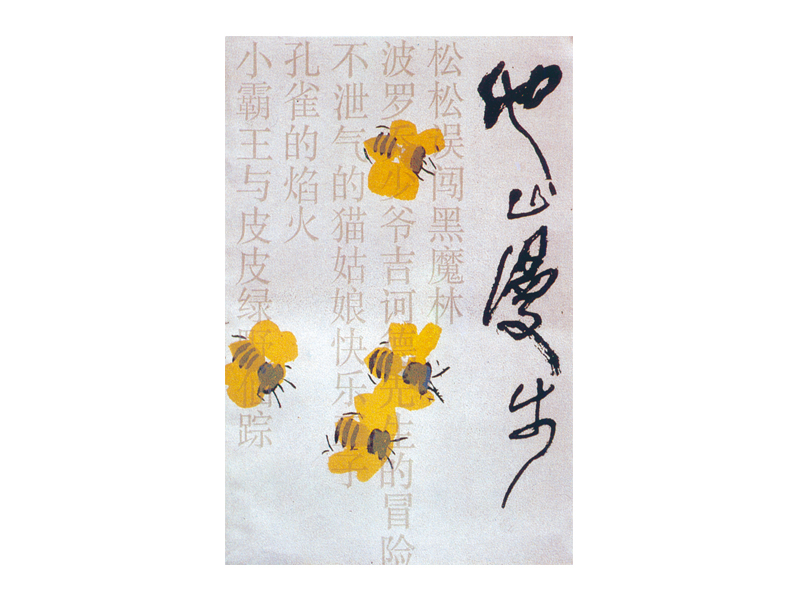 他山漫步
松松误闯黑魔林
波罗少爷吉诃德先生的冒险
不泄气的猫姑娘快乐子
孔雀的焰火
小霸王与皮皮绿野仙踪